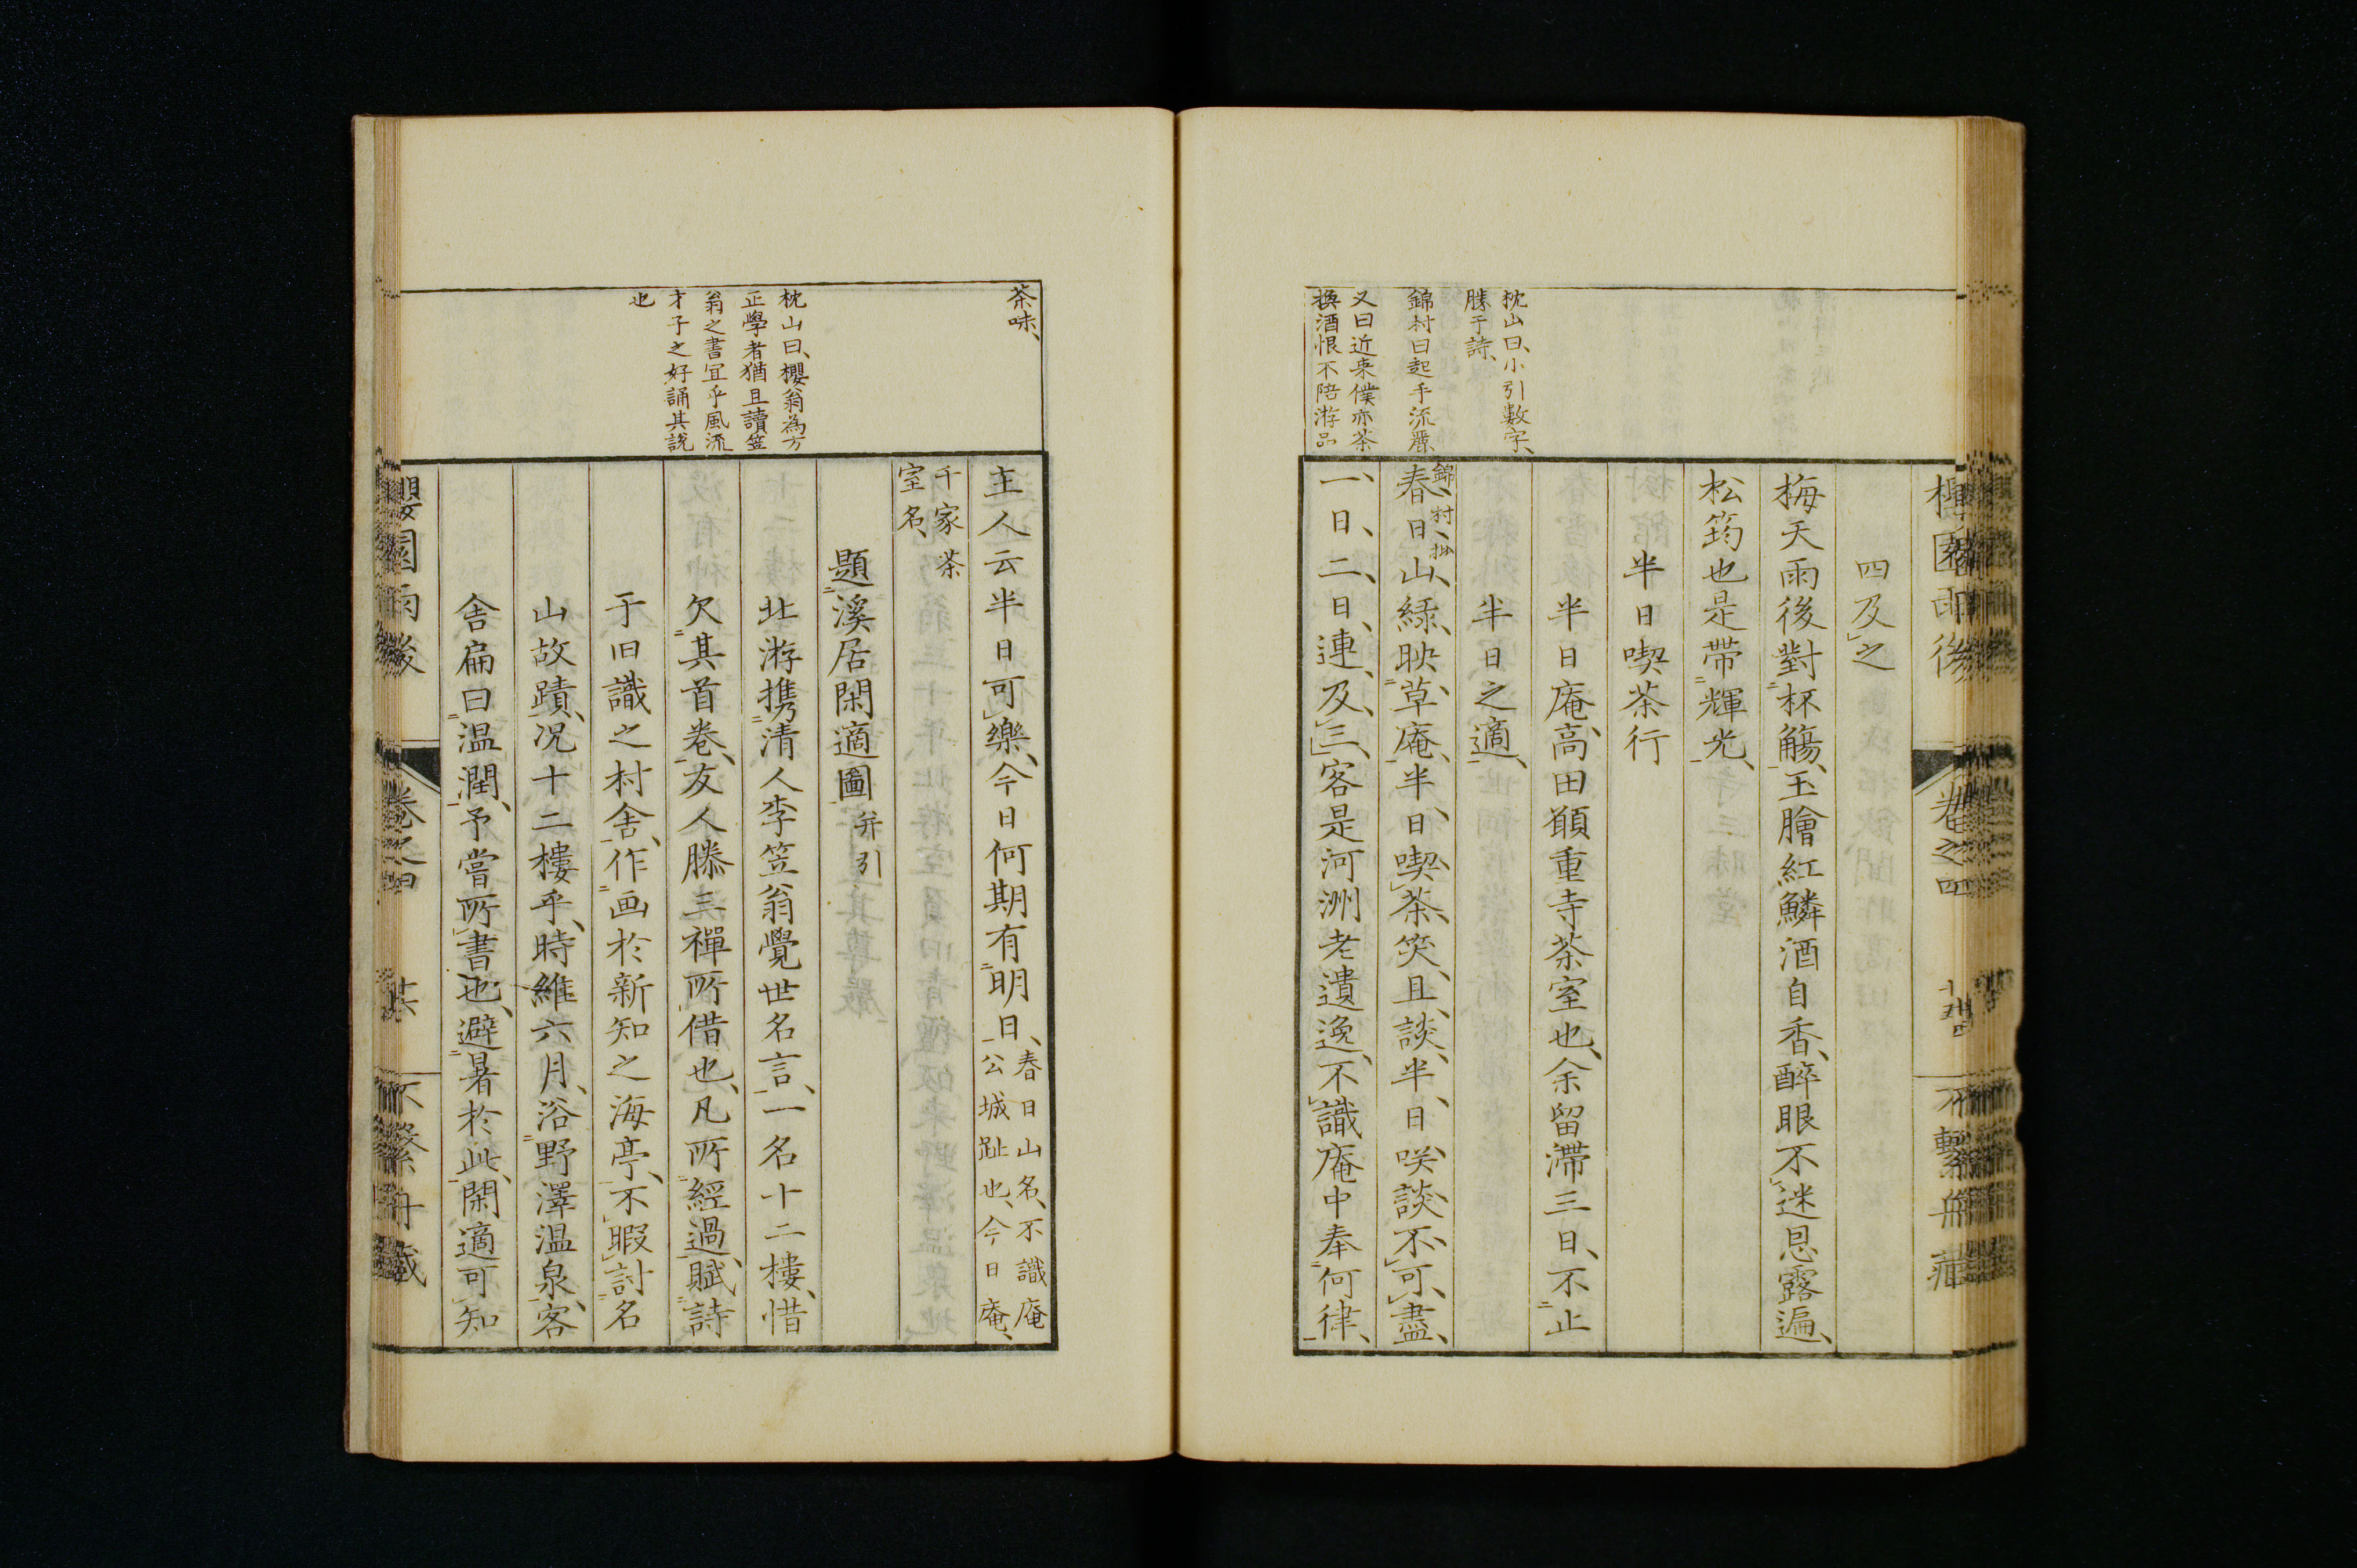 四及之
梅天雨後對杯觴、玉膾紅鱗酒自香、醉眼不迷恩露遍、
松筠也是帶輝光、
半日喫茶行
半日庵、高田願重寺茶室也、余留滯三日、不止
半日之適、
春日山綠映草庵、半日喫茶笑且談、半日咲談不可盡、
錦村批
一日二日連及三、客是河洲老遺逸、不識庵中奉何律、
枕山曰、小引數字、
勝于詩、
錦村曰起手流麗
又曰近来僕亦茶
換酒恨不陪游品
茶味、
主人云半日可樂、今日何期有明日、
春日山名、不識庵
公城趾也、今日庵、
千家茶
室名、
題溪居閑適圖
并引
北游携清人李笠翁覺世名言、一名十二樓、惜
欠其首卷、友人滕三禪所借也、凡所經過、賦詩
于旧識之村舍、作画於新知之海亭、不暇討名
山故蹟、况十二樓乎、時維六月、浴野澤温泉、客
舍扁曰温潤、予嘗所書也、避暑於此、閑適可知
枕山曰、櫻翁為方
正學者猶且讀笠
翁之書宜乎風流
才子之好誦其說
也
櫻園雨後
卷之四
不繫舟藏